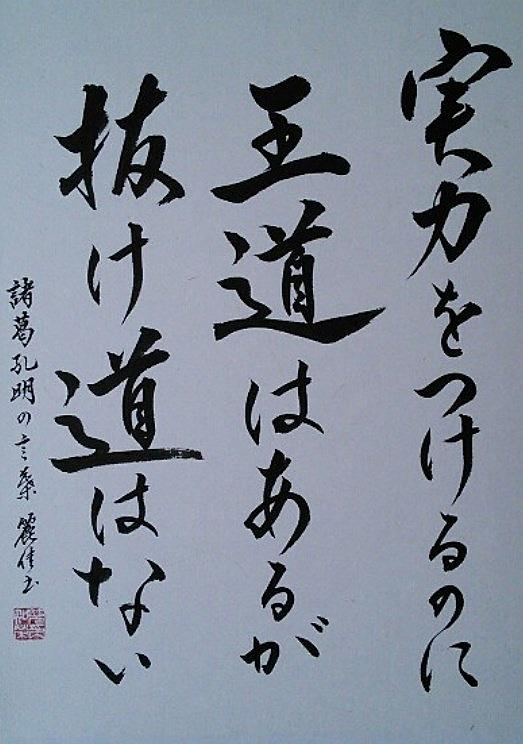 実力をつけるのに
王道はあるが
抜け道はない
諸葛孔明の言葉 麗佳書